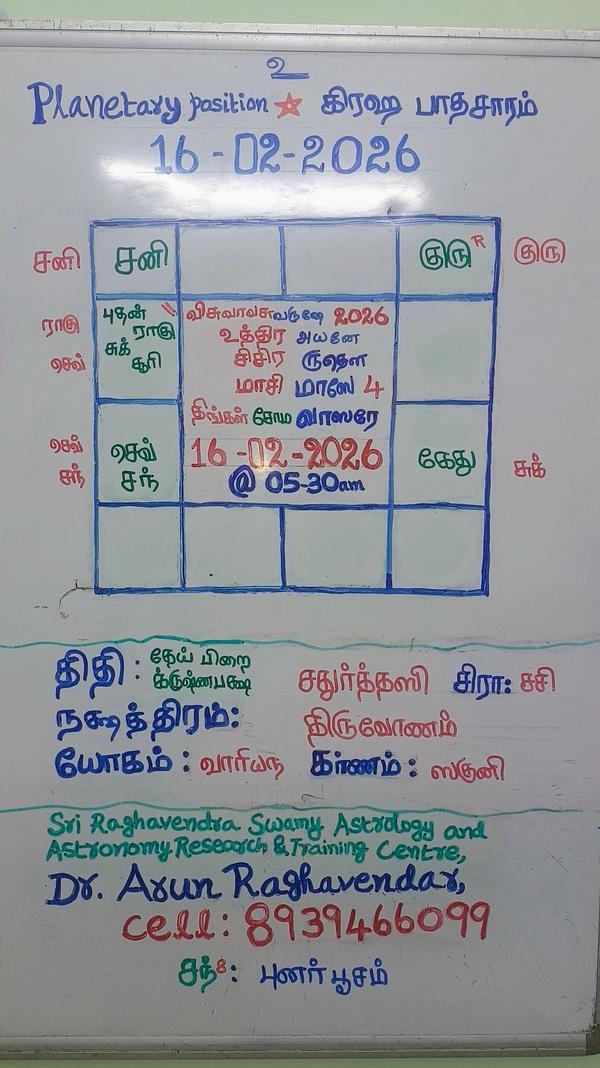 உ
Planetary position ☆ கிரஹ பாதசாரம்
16-02-2026
சனி சனி குரு R குரு
ராகு புதன் ராகு
செவ் சுக் சூரி
விசுவாவசு வருஷே 2026
உத்திர அயனே
சிசிர ருதௌ
மாசி மாஸே 4
திங்கள் சோம வாஸரே
16-02-2026
@ 05-30am
செவ் செவ் கேது சுக்
சந் சந்
திதி : தேய் பிறை
க்ருஷ்ணபக்ஷ சதுர்த்தஸி சிரா: சசி
நக்ஷத்திரம்: திருவோணம்
யோகம் : வாரியந கர்ணம் : ஸகுனி
Sri Raghavendra Swamy Astrology and
Astronomy Research & Training Centre,
Dr. Arun Raghavendar,
cell: 8939466099
சந்8: புனர் பூசம்